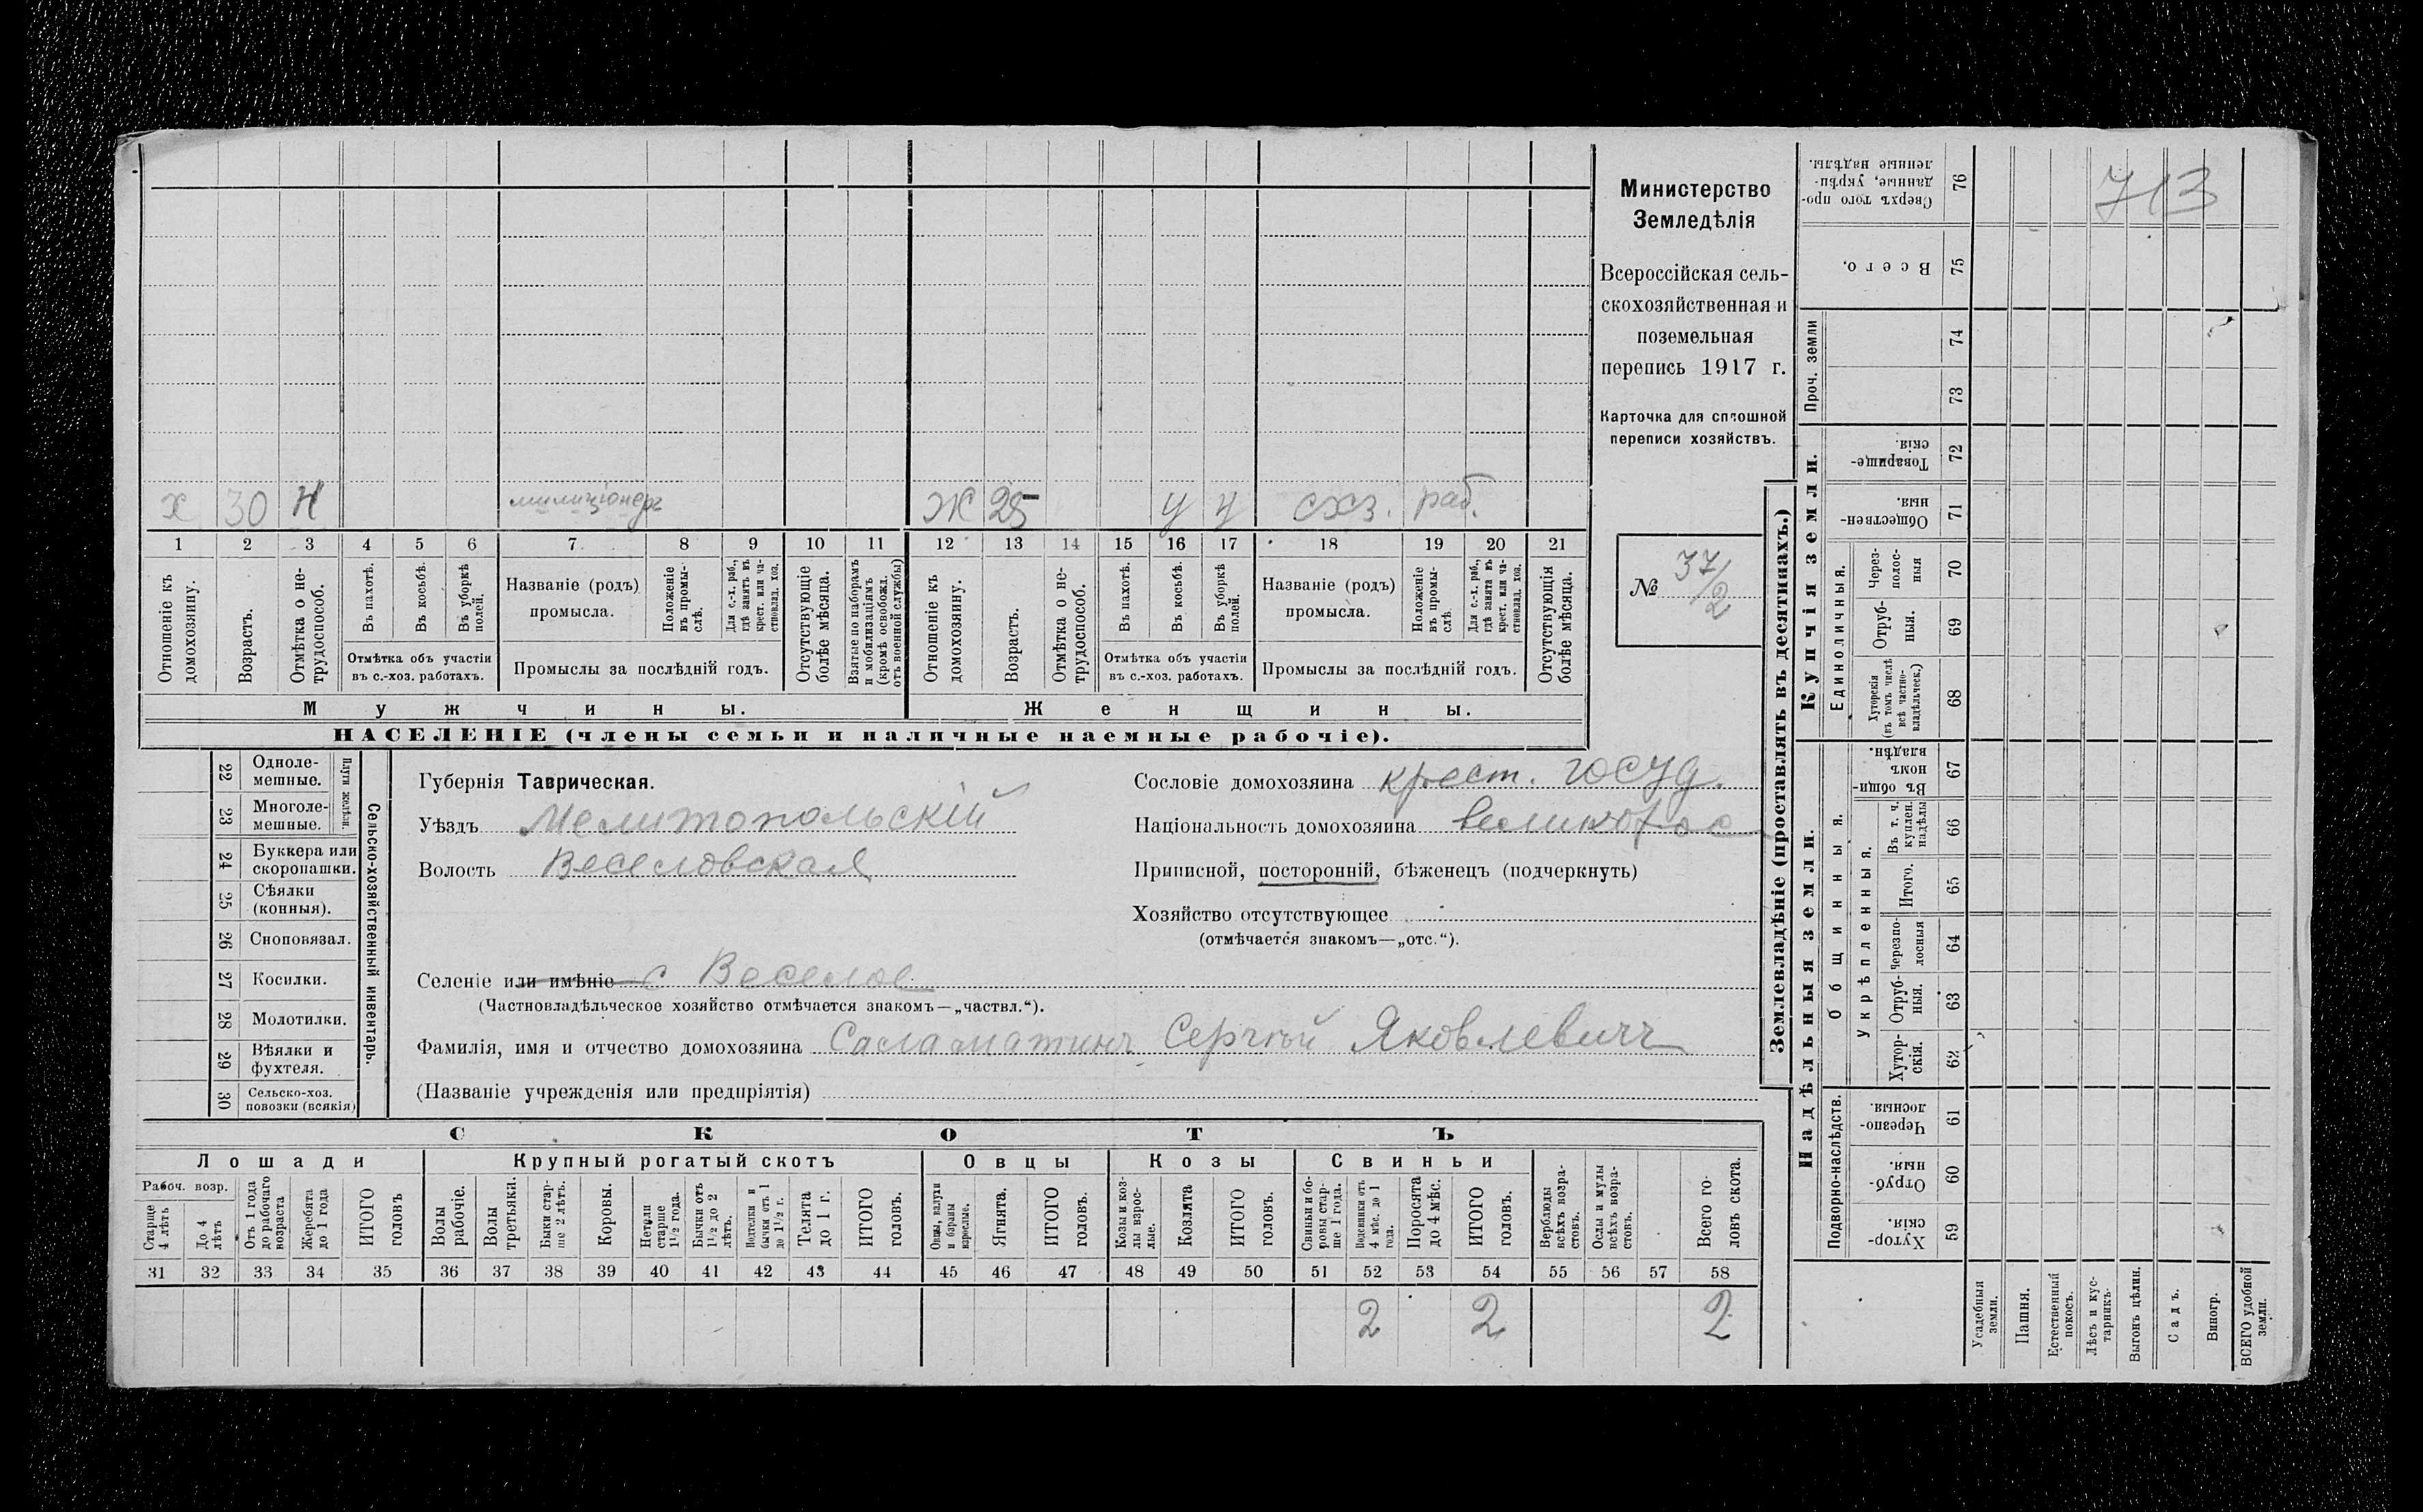 х 30 Н милиціонеръ Ж 25 у у схз. раб.
1 2 3 4 5 6 7 8 9 10 11 12 13 14 15 16 17 18 19 20 21
Отношеніе къ домохозяину.
Возрастъ.
Отмѣтка о не-трудоспособ.
Въ пахотѣ.
Въ косьбѣ.
Въ уборкѣ полей.
Отмѣтка объ участіи
въ с.-хоз. работахъ.
Названіе (родъ)
промысла.
Положеніе въ промы-слѣ.
Для с.-х. раб., гдѣ занятъ въ крест. или ча-стновлад. хоз.
Промыслы за послѣдній годъ.
Отсутствующіе болѣе мѣсяца.
Взятые по наборамъ и мобилизаціямъ (кромѣ освобожд. отъ военной службы)
Отношеніе къ домохозяину.
Возрастъ.
Отмѣтка о не-трудоспособ.
Въ пахотѣ.
Въ косьбѣ.
Въ уборкѣ полей.
Отмѣтка объ участіи
въ с.-хоз. работахъ.
Названіе (родъ)
промысла.
Положеніе въ промы-слѣ.
Для с.-х. раб., гдѣ занята въ крест. или ча-стновлад. хоз.
Промыслы за послѣдній годъ.
Отсутствующія болѣе мѣсяца.
Мужчины.
Женщины.
НАСЕЛЕНІЕ (члены семьи и наличные наемные рабочіе).
Министерство
Земледѣлія
Всероссійская сель-
скохозяйственная и
поземельная
перепись 1917 г.
Карточка для сплошной
переписи хозяйствъ.
№ 37/2
22 Одноле-мешные.
23 Многоле-мешные.
Плуги желѣзн.
24 Буккера или скоропашки.
25 Сѣялки (конныя).
26 Сноповязал.
27 Косилки.
28 Молотилки.
29 Вѣялки и фухтеля.
30 Сельско-хоз. повозки (всякія)
Сельско-хозяйственный инвентарь.
Губернія Таврическая.
Уѣздъ Мелитопольскій
Волость Веселовская
Сословіе домохозяина крест. госуд.
Національность домохозяина великорос
Приписной, посторонній, бѣженецъ (подчеркнуть)
Хозяйство отсутствующее
(отмѣчается знакомъ—„отс.“).
Селеніе или имѣніе с Веселое
(Частновладѣльческое хозяйство отмѣчается знакомъ—„частвл.“).
Фамилія, имя и отчество домохозяина Саламатинъ Сергѣй Яковлевичъ
(Названіе учрежденія или предпріятія)
СКОТЪ
Лошади
Крупный рогатый скотъ
Овцы
Козы
Свиньи
Рабоч. возр.
Старше 4 лѣтъ
До 4 лѣтъ
Отъ 1 года до рабочаго возраста
Жеребята до 1 года
ИТОГО головъ
Волы рабочіе.
Волы третьяки.
Быки стар-ше 2 лѣтъ.
Коровы.
Нетели старше 1½ года.
Бычки отъ 1½ до 2 лѣтъ.
Нетелки и бычки отъ 1 до 1½ г.
Телята до 1 г.
ИТОГО головъ.
Овцы, валухи и бараны взрослые.
Ягнята.
ИТОГО головъ.
Козы и коз-лы взрос-лые.
Козлята
ИТОГО головъ.
Свиньи и бо-ровы стар-ше 1 года.
Подсвинки отъ 4 мѣс. до 1 года.
Поросята до 4 мѣс.
ИТОГО головъ.
Верблюды всѣхъ возра-стовъ.
Ослы и мулы всѣхъ возра-стовъ.
Всего го-ловъ скота.
31 32 33 34 35 36 37 38 39 40 41 42 43 44 45 46 47 48 49 50 51 52 53 54 55 56 57 58
2 2 2
Землевладѣніе (проставлять въ десятинахъ.)
Сверхъ того про-данные, укрѣп-ленные надѣлы. 76
713
Всего. 75
Проч. земли
74
73
Купчія земли.
Товарище-скія. 72
Обществен-ныя. 71
Единоличныя.
Через-полос-ныя 70
Отруб-ныя. 69
Хуторскія (въ томъ числѣ всѣ частно-владѣльческ.) 68
Надѣльныя земли.
Общинныя.
Въ общи-номъ владѣн. 67
Укрѣпленныя.
Въ т. ч. куплен. надѣлы 66
Итого. 65
Черезпо-лосныя 64
Отруб-ныя. 63
Хутор-скія. 62
Подворно-наслѣдств.
Черезпо-лосныя. 61
Отруб-ныя. 60
Хутор-скія. 59
Усадебныя земли.
Пашня.
Естественный покосъ.
Лѣсъ и кус-тарникъ.
Выгонъ цѣлин.
Садъ.
Виногр.
ВСЕГО удобной земли.